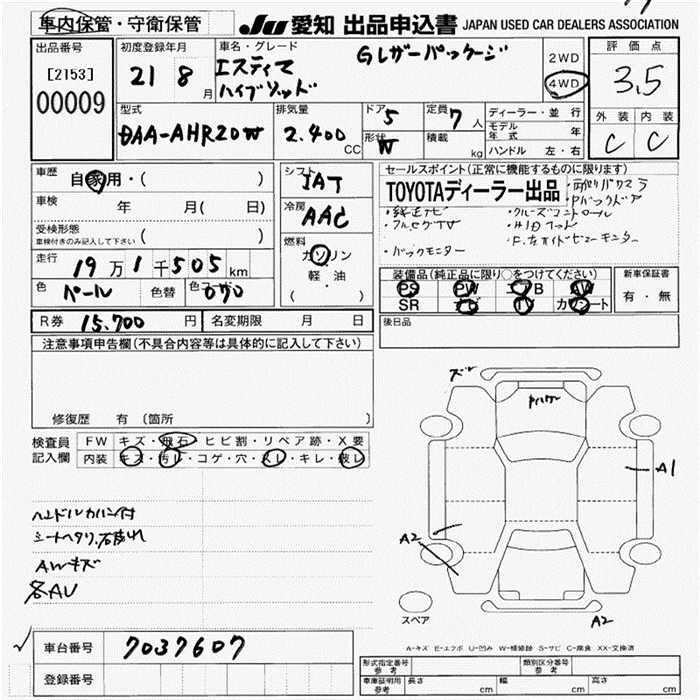 車内保管・守衛保管
JU 愛知 出品申込書 JAPAN USED CAR DEALERS ASSOCIATION
出品番号
[2153]
00009
初度登録年月
21 8月
車名・グレード
Gレザーパッケージ
エスティマ
ハイブリッド
2WD
4WD
評価点
3.5
外装 内装
C C
型式
DAA-AHR20W
排気量
2.400 CC
ドア 5
形状 W
定員 7人
積載 kg
ディーラー・並行
モデル年式 年
ハンドル 左・右
車歴
自家用・( )
車検 年 月( 日)
受検形態
車検付きのみ記入して下さい ( )
走行 19万1千505km
色 パール 色替 色コード 070
シフト
IAT
冷房
AAC
燃料
ガソリン
軽・油
( )
セールスポイント(正常に機能するものに限ります)
TOYOTAディーラー出品
・両側パワスラ
・Pバックドア
・純正ナビ
・フルセグTV
・バックモニター
・クルーズコントロール
・HIDライト
・F、左サイドビューモニター
装備品(純正品に限り○をつけてください)
PS PW エアB AW
SR ナビ TV カワシート
新車保証書
有・無
R券 15.700 円 名変期限 月 日
後日品
注意事項申告欄(不具合内容等は具体的に記入して下さい)
修復歴 有 (箇所 )
検査員記入欄
FW キズ・飛石・ヒビ割・リペア跡・X要
内装 キズ・汚レ・コゲ・穴・スレ・キレ・破レ
ハンドルカバー付
シートヘタリ、右破れ
AWキズ
各AU
A1
A2
A2
スペア
A-キズ E-エクボ U-凹み W-補修跡 S-サビ C-腐食 XX-交換済
車台番号 7037607
登録番号
形式指定番号 参考
類別区分番号 参考
車庫証明用 参考 長さ cm 幅 cm 高さ cm